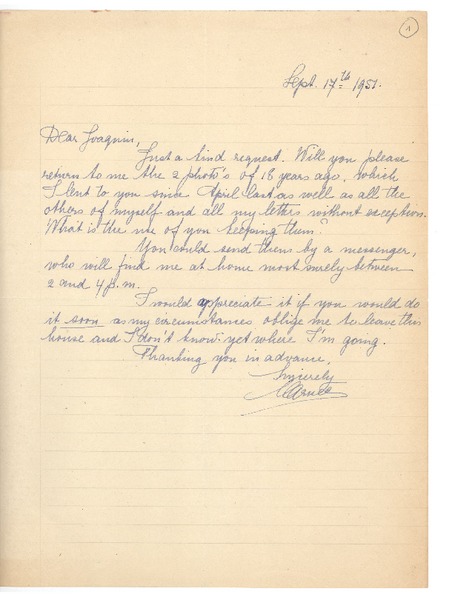 A
Sept. 17th 1951.
Dear Joaquin,
Just a kind request. Will you please
return to me the 2 photo's of 18 years ago. which
I lent to you since April last as well as all the
others of myself and all my letters without exception.
What is the use of you keeping them?
You could send them by a messenger,
who will find me at home most surely between
2 and 4 p.m.
I would appreciate it if you would do
it soon as my circumstances oblige me to leave this
house and I don't know yet where I'm going.
Thanking you in advance,
Sincerely